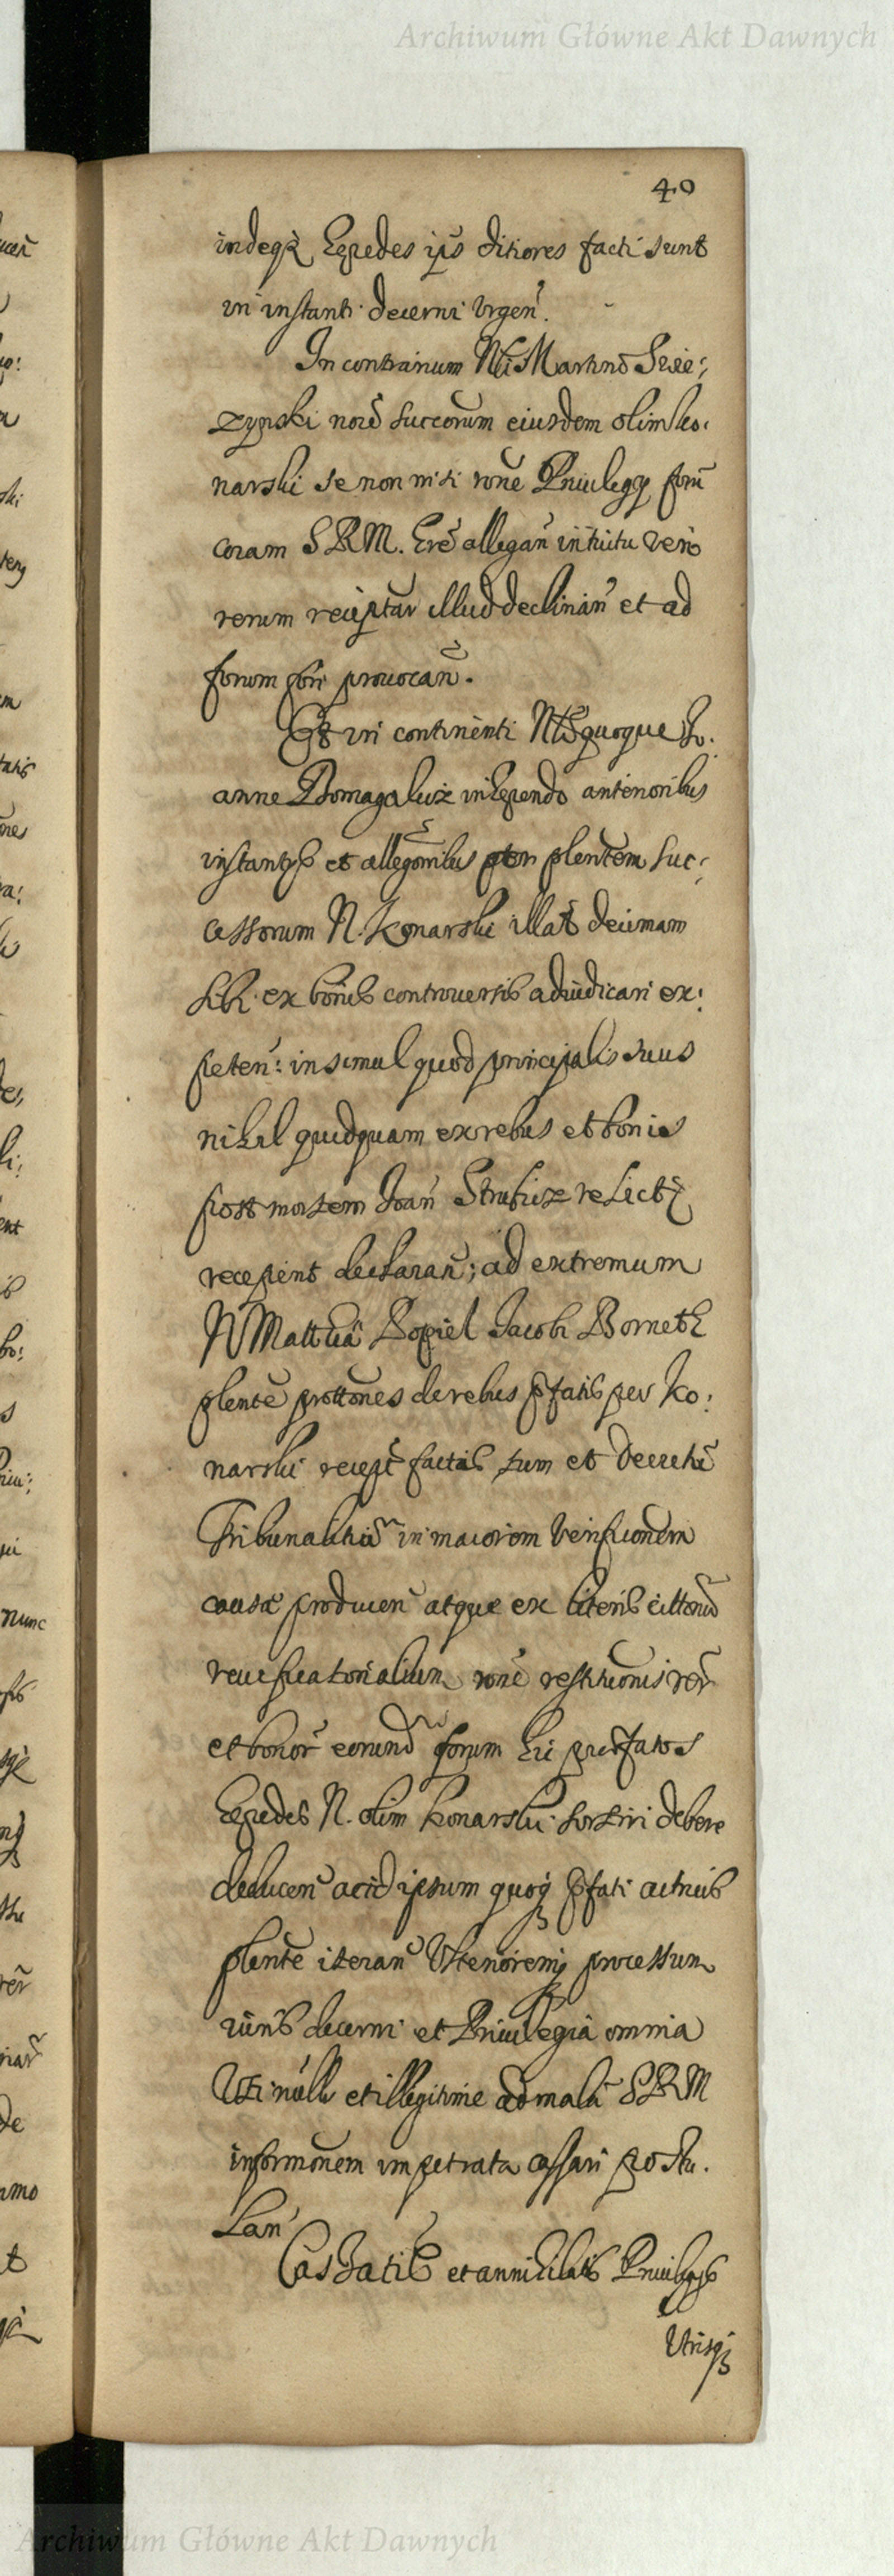 Archiwum Główne Akt Dawnych
40
indeqz Hęredes ips ditiores facti sunt
in instanti decerni Urgen.
In contrarium Nli Martino
zynski noie Succorum eiusdem olim Ko:
narski se non nisi rone Priuilegij fori
coram S R M. Hre allegan intuitu vero
rerum receptar illud declinan et ad
forum fori prouocan.
Et in continenti Nlo quoque Jo:
anne Domagalicz inhęrendo anterioribus
instantijs et allegonibus plentem Suc:
cessorum N. Konarski illat decimam
sibi ex bonis controuersis adiudicari ex:
peten: insimul quod principalis suus
nihil quidquam ex rebus et bonis
post mortem Joan Strubicz relictis
recepint declaran; ad extremum
N Matthia Popiel Jacobi Borneth
plente prottones de rebus pfatis per Ko:
narski recept factas tum et Decreta
Tribunalitia in maiorem verificionem
causæ producen atque ex literis cittonis
reue rone restitutionis rer
et bonor eorund forum hic præfatos
Hęredes N. olim Konarski sortiri debere
deducen ac id ipsum quoqz pfati actricis
plente iteran Ulteriorem processum
iuris decerni et Priuilegia omnia
Uti nulla et illegitime ad mala S R M
informonem impetrata cassari postu.
lan
Cassatis et annihilatis Priuilegijs
Utrisqz
Archiwum Główne Akt Dawnych